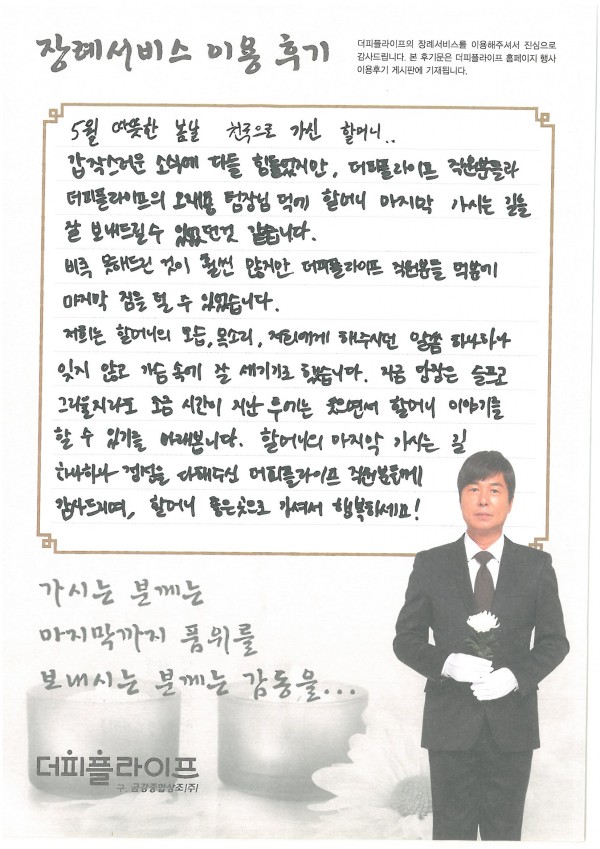 장례서비스 이용 후기
더피플라이프의 장례서비스를 이용해주셔서 진심으로
감사드립니다. 본 후기문은 더피플라이프 홈페이지 행사
이용후기 게시판에 기재됩니다.
5월 따뜻한 봄날 천국으로 가신 할머니..
갑작스러운 소식에 다들 힘들었지만, 더피플라이프 직원분들과
더피플라이프의 오재용 팀장님 덕에 할머니 마지막 가시는 길을
잘 보내드릴수 있었던것 같습니다.
비록 못해드린 것이 훨씬 많지만 더피플라이프 직원분들 덕분에
마지막 짐을 덜 수 있었습니다.
저희는 할머니의 모습, 목소리, 저희에게 해주시던 말씀 하나하나
잊지 않고 가슴 속에 잘 새기기로 했습니다. 지금 당장은 슬프고
그리울지라도 조금 시간이 지난 후에는 웃으면서 할머니 이야기를
할 수 있기를 바래봅니다. 할머니의 마지막 가시는 길
하나하나 정성을 다해주신 더피플라이프 직원분들께
감사드리며, 할머니 좋은곳으로 가셔서 행복하세요!
가시는 분께는
마지막까지 품위를
보내시는 분께는 감동을...
더피플라이프
구. 금강종합상조(주)